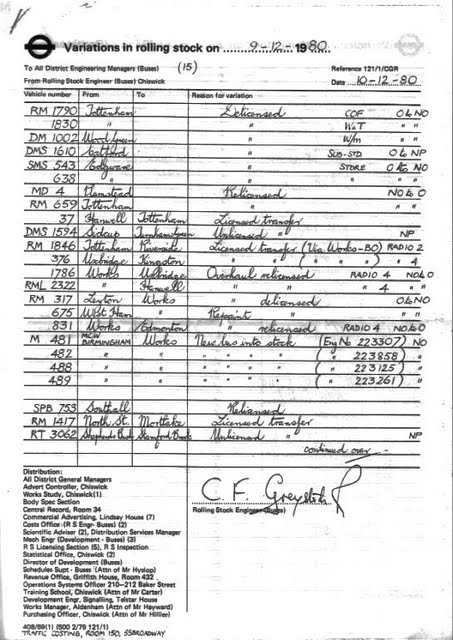 Variations in rolling stock on 9-12-1980
To All District Engineering Managers (Buses) (15) Reference 121/1/CGR
From Rolling Stock Engineer (Buses) Chiswick Date 10-12-80
Vehicle number From To Reason for variation
RM 1790 Tottenham Delicensed COF O to NO
1830 " " W&T " "
DM 1002 Wood Green " W/m " "
DMS 1610 Catford " SUB-STD O to NP
SMS 543 Edgware " STORE O to NO
638 " " " "
MD 4 Plumstead Relicensed NO to O
RM 659 Tottenham " "
37 Hanwell Tottenham Licensed transfer
DMS 1594 Sidcup Turnham Green Unlicensed " NP
RM 1846 Tottenham Riverside Licensed transfer (Via Works-BO) RADIO 2
376 Uxbridge Kingston " " ( " " " ) " 4
1786 Works Uxbridge Overhaul relicensed RADIO 4 NO to O
RML 2322 " Hanwell " " " 4 " "
RM 317 Leyton Works " delicensed O to NO
675 West Ham " Repaint " "
831 Works Edmonton " relicensed RADIO 4 NO to O
M 481 MCW BIRMINGHAM Works New bus into stock (Eng No 223307) NO
482 " " " " " " ( " 223858) "
488 " " " " " " ( " 223125) "
489 " " " " " " ( " 223261) "
SPB 753 Southall Relicensed
RM 1417 North St. Mortlake Licensed transfer
RT 3062 Shepherds Bush Stamford Brook Unlicensed " NP
continued over
Distribution:
All District General Managers
Advert Controller, Chiswick
Works Study, Chiswick(1)
Body Spec Section
Central Record, Room 34
Commercial Advertising, Lindsay House (7)
Costs Office (R S Engr- Buses) (2)
Scientific Adviser (2), Distribution Services Manager
Mech Engr (Development - Buses) (3)
R S Licensing Section (5), R S Inspection
Statistical Office, Chiswick (2)
Director of Development (Buses)
Schedules Supt - Buses (Attn of Mr Hyslop)
Revenue Office, Griffith House, Room 432
Operations Systems Officer 210-212 Baker Street
Training School, Chiswick (Attn of Mr Carter)
Development Engr, Signalling, Telstar House
Works Manager, Aldenham (Attn of Mr Hayward)
Purchasing Officer, Chiswick (Attn of Mr Hillier)
C. F.
Rolling Stock Engineer (Buses)
408/89(1) (500 2/79 121/1)
TRAFFIC COSTING, ROOM 150, 55 BROADWAY